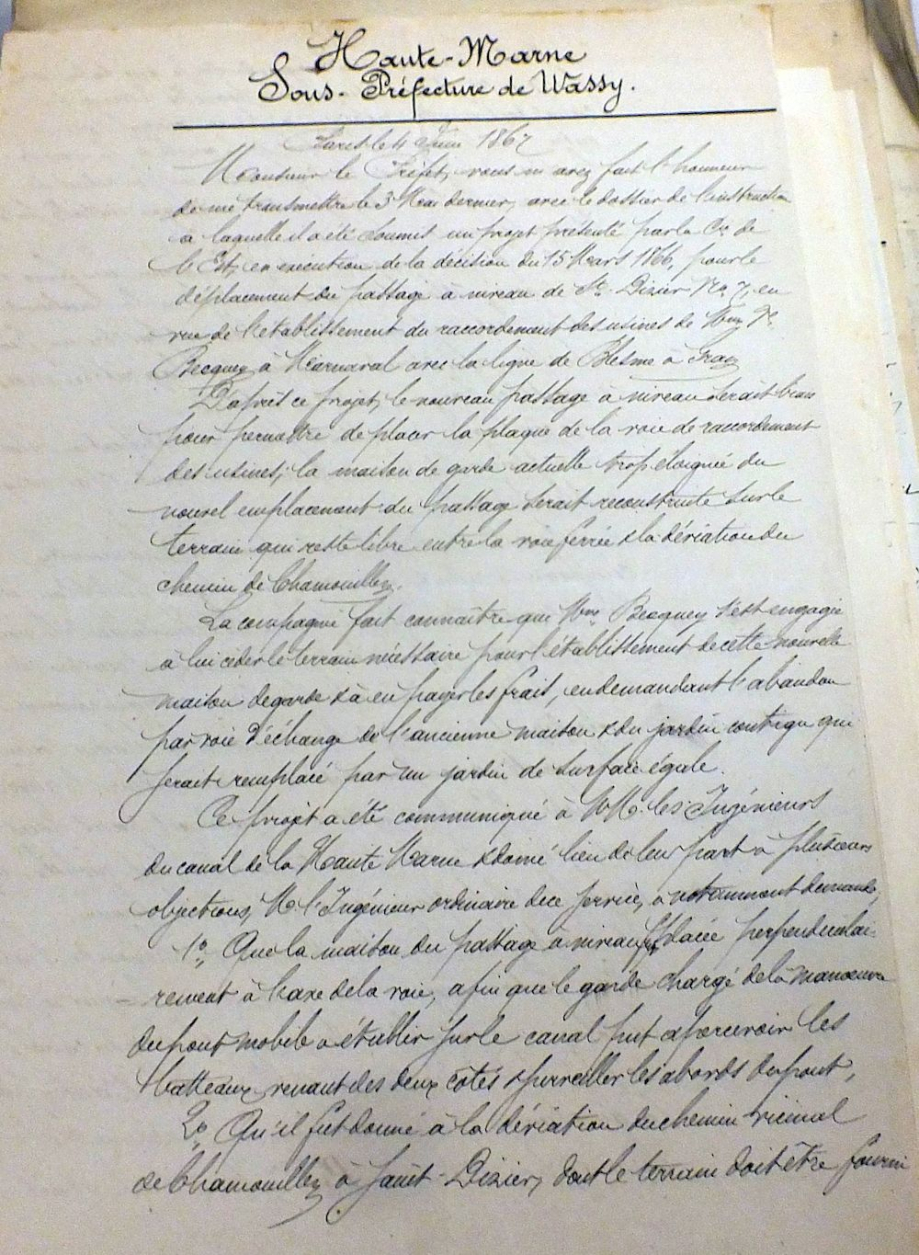 Haute-Marne
Sous-Préfecture de Wassy.
Paris le 4 Juin 1867
Monsieur le Préfet, vous m'avez fait l'honneur
de me transmettre le 3 Mai dernier, avec le dossier de l'instruction
à laquelle il a été soumis un projet présenté par la Cie de
l'Est, en exécution de la décision du 15 Mars 1866, pour le
déplacement du passage à niveau de St. Dizier No. 7, en
vue de l'établissement du raccordement des usines de Mme Ve
Becquey à Marnaval avec la ligne de Blesme à Gray
D'après ce projet, le nouveau passage à niveau serait biais
pour permettre de placer la plaque de la voie de raccordement
des usines; la maison de garde actuelle trop éloignée du
nouvel emplacement du passage serait reconstruite sur le
terrain qui reste libre entre la voie ferrée & la déviation du
chemin de Chamouilley.
La compagnie fait connaître que Mme Becquey s'est engagée
à lui céder le terrain nécessaire pour l'établissement de cette nouvelle
maison de garde & à en payer les frais, en demandant l'abandon
par voie d'échange de l'ancienne maison & du jardin contigu qui
serait remplacé par un jardin de surface égale.
Ce projet a été communiqué à MM. les Ingénieurs
du canal de la Haute Marne & donné lieu de leur part à plusieurs
objections, M. l'Ingénieur ordinaire de ce service, a notamment demandé,
1o. Que la maison du passage à niveau fût placée perpendiculai-
rement à l'axe de la voie, afin que le garde chargé de la manoeuvre
du pont mobile à établir sur le canal put apercevoir les
batteaux, venant des deux côtés & surveiller les abords du pont,
2o. Qu'il fut donné à la déviation du chemin vicinal
de Chamouilley à Saint-Dizier, dont le terrain doit être fourni